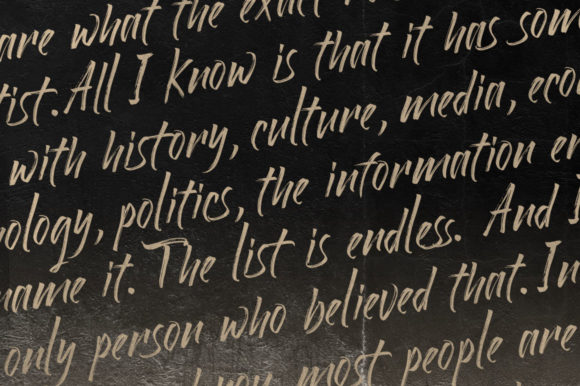 are what the exact
tist. All I know is that it has som
with history, culture, media, eco
nology, politics, the information er
name it. The list is endless. And I
only person who believed that. In
you, most people are